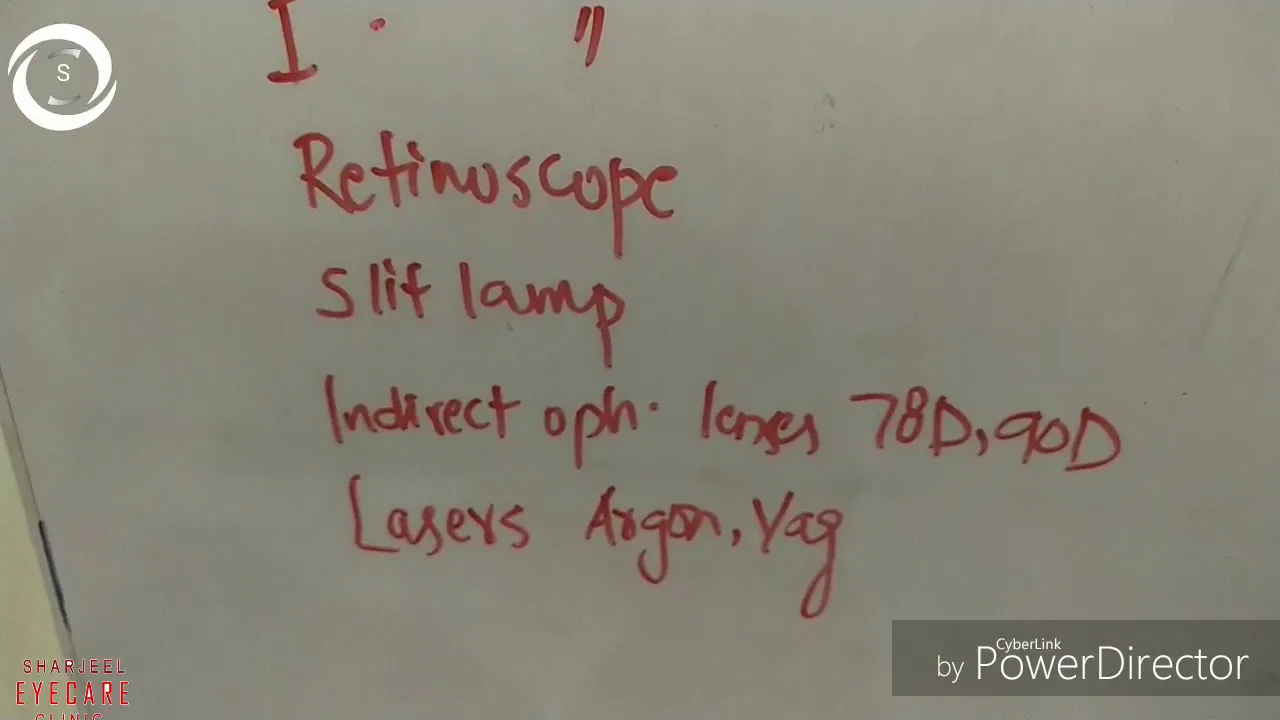 S
I. "
Retinoscope
Slit lamp
Indirect oph. lenses 78D, 90D
Lasers Argon, Yag
SHARJEEL
EYECARE
CLINIC
CyberLink
by PowerDirector